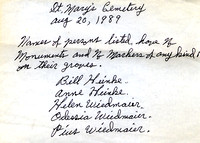 St. Mary's Cemetery
Aug 20, 1989
Names of persons listed have No
Monuments and No Markers of any kind
on their graves.
Bill Heinke.
Anne Heinke.
Helen Wiedmaier.
Odessia Wiedmaier.
Pius Wiedmaier.